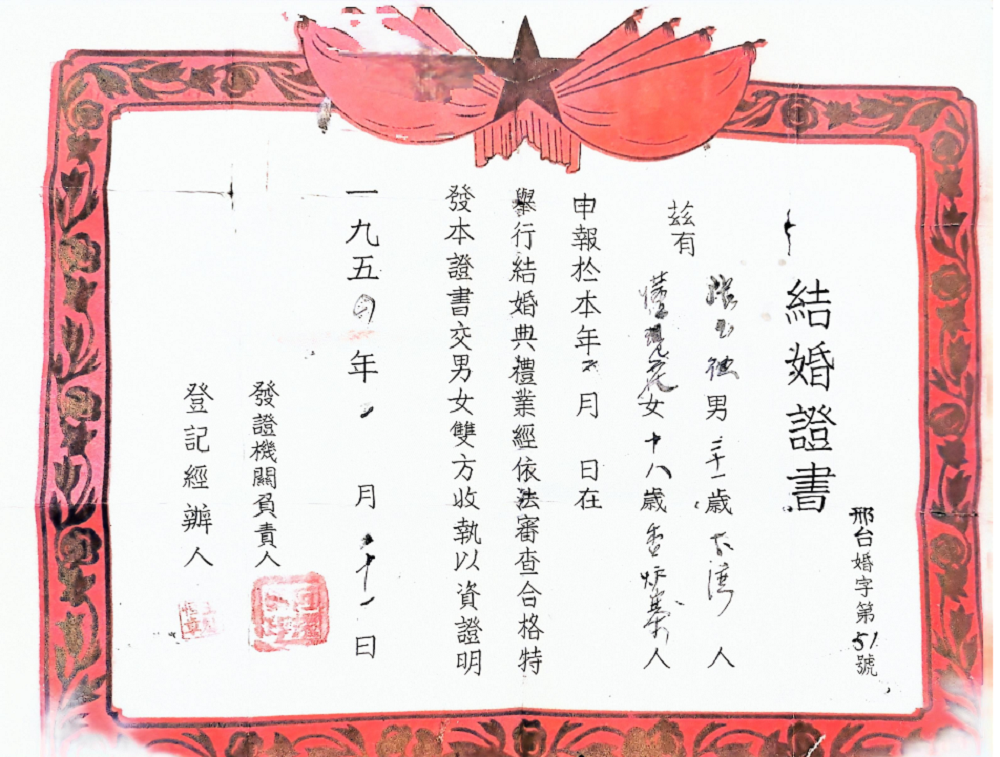 結婚證書
邢台婚字第51號
茲有
男三十一歲 人
女十八歲 人
申報於本年 月 日在
舉行結婚典禮業經依法審查合格特
發本證書交男女雙方收執以資證明
一九五 年 月 十一日
發證機關負責人
登記經辦人